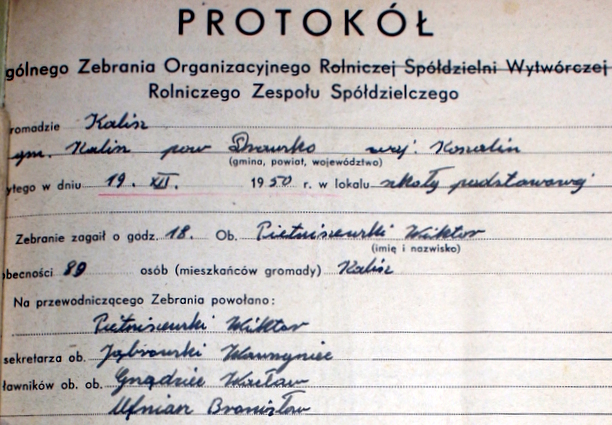 PROTOKÓŁ
gólnego Zebrania Organizacyjnego Rolniczej Spółdzielni Wytwórczej
Rolniczego Zespołu Spółdzielczego
romadzie Kalisz
gm. Kalisz pow Drawsko woj. Koszalin
(gmina, powiat, województwo)
ytego w dniu 19. XII. 1950 r. w lokalu szkoły podstawowej
Zebranie zagaił o godz. 18. Ob. Pietniszewski Wiktor
(imię i nazwisko)
obecności 89 osób (mieszkańców gromady) Kalisz
Na przewodniczącego Zebrania powołano:
Pietniszewski Wiktor
sekretarza ob. Wawrzyniec
ławników ob. ob. Wacław
Bronisław